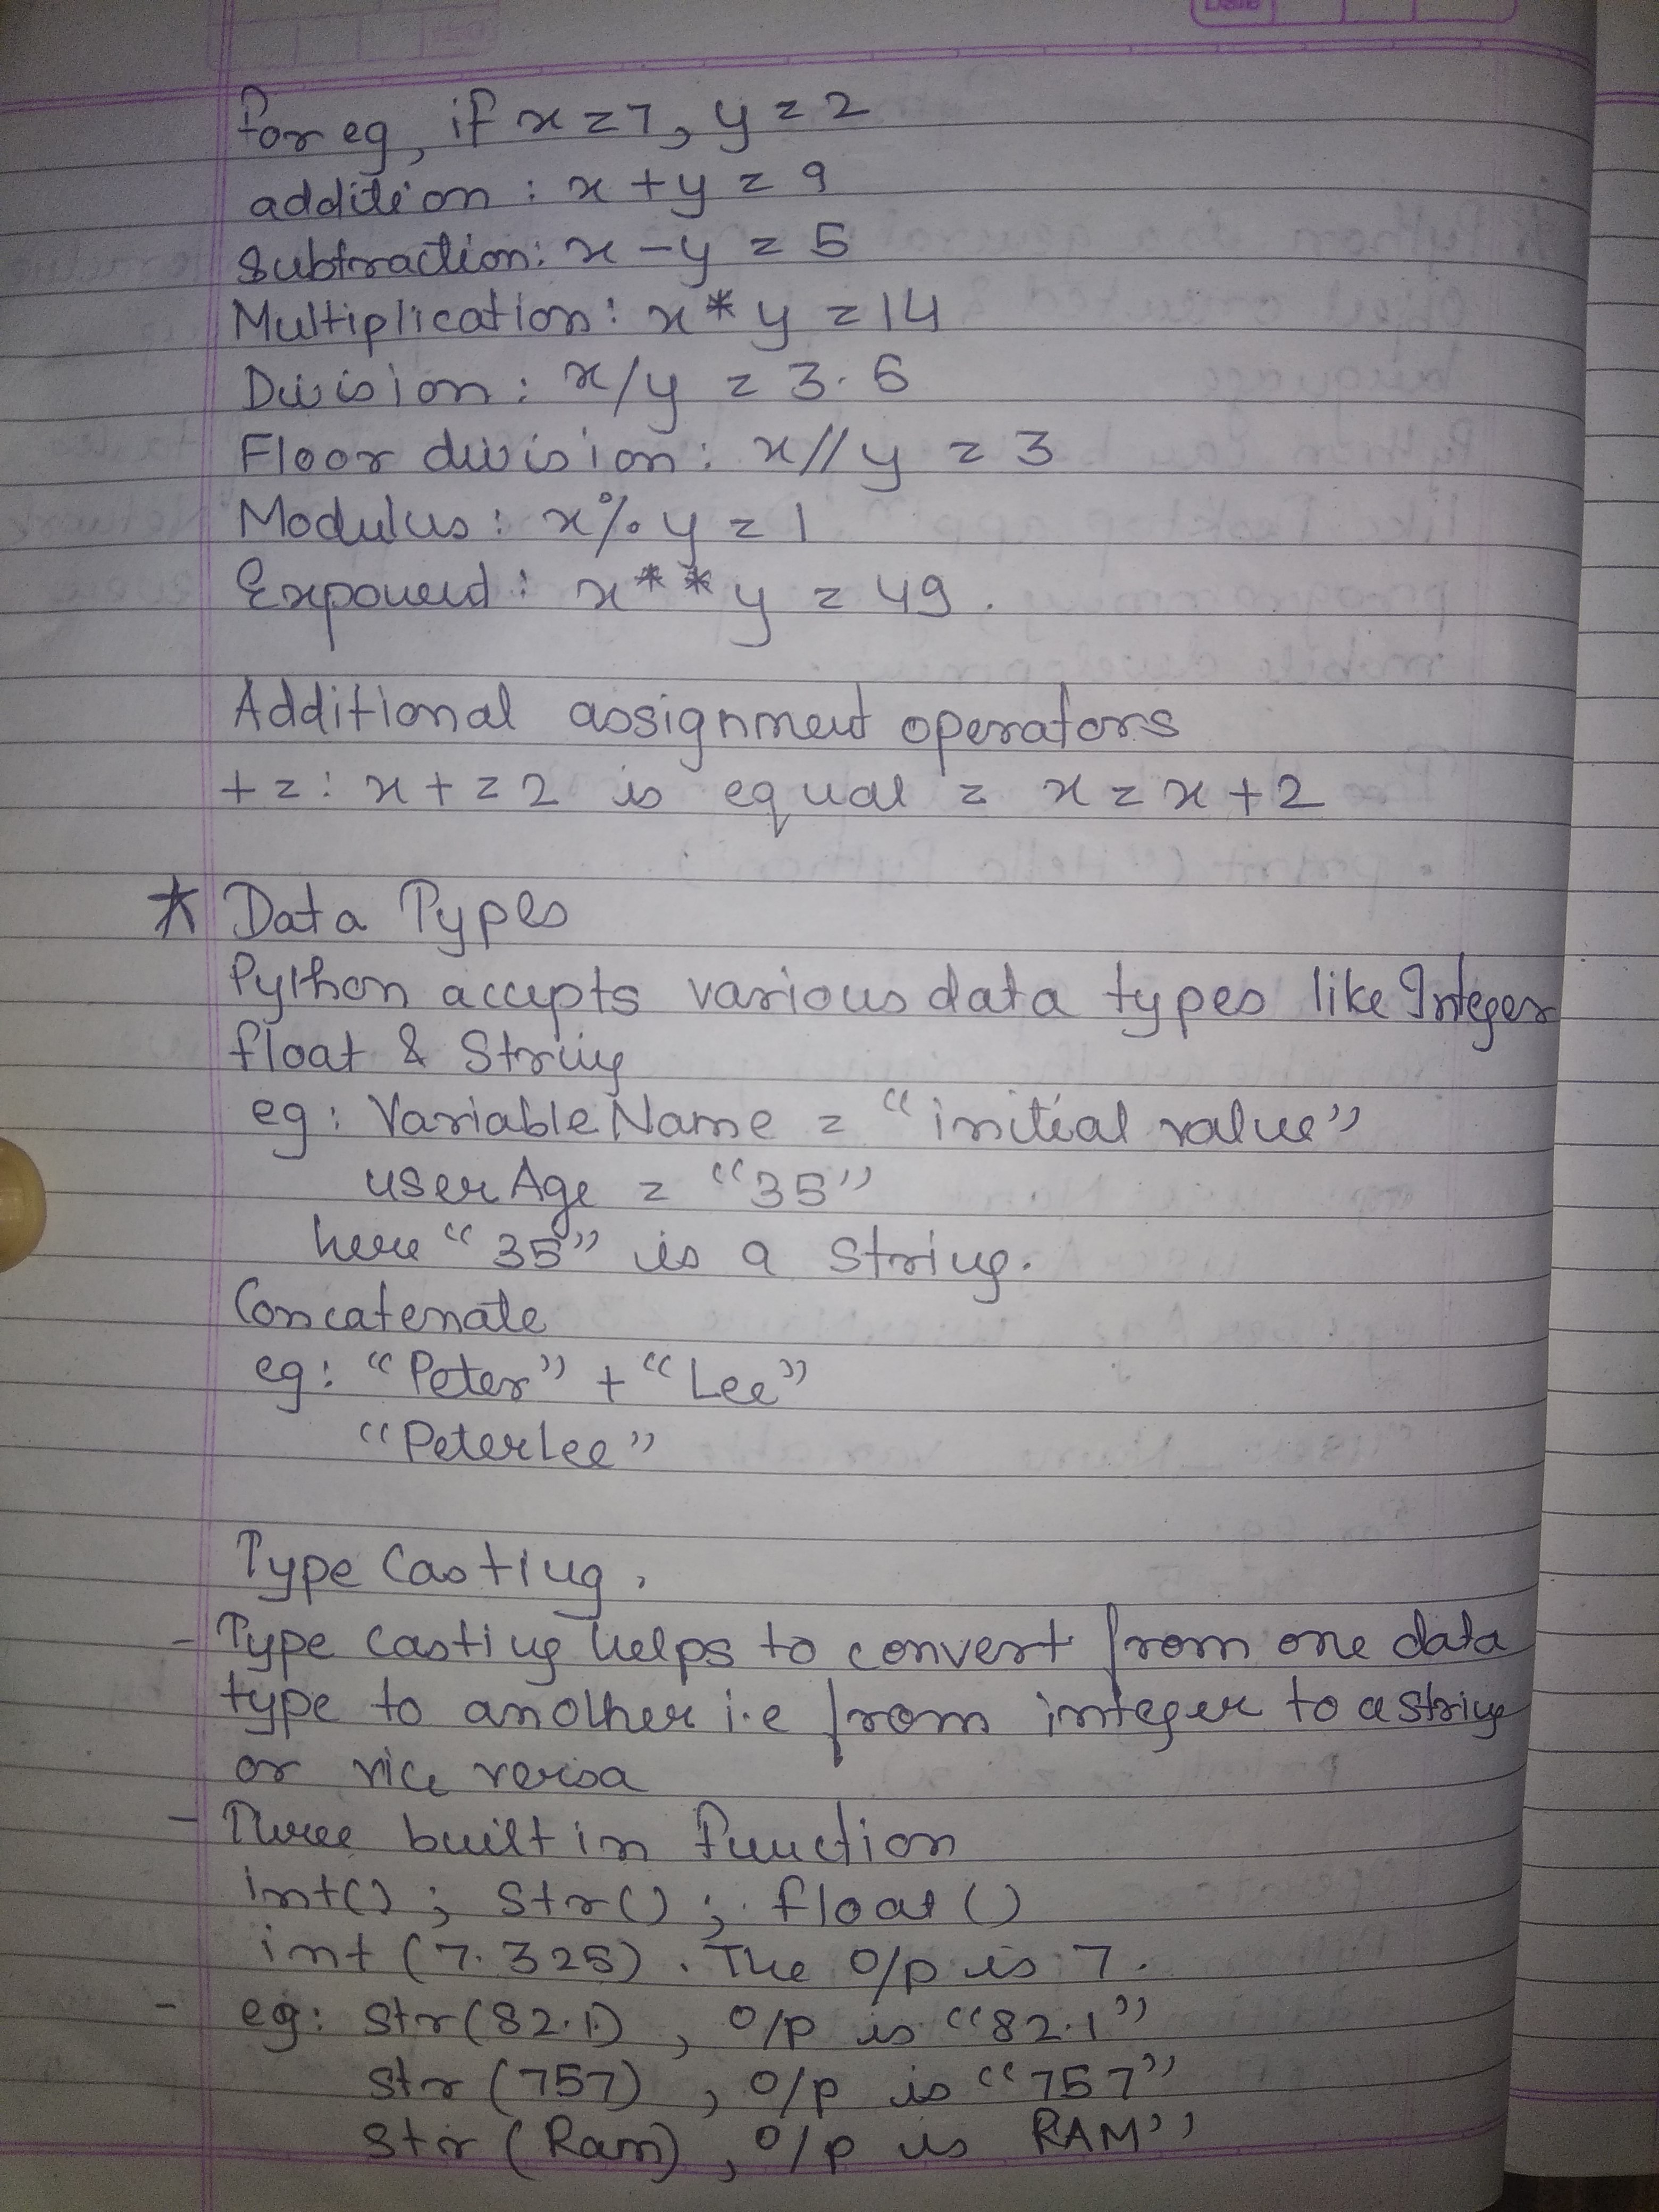 Date
For eg, if x=7, y=2
addition : x+y = 9
Subtraction: x-y = 5
Multiplication: x*y = 14
Division: x/y = 3.5
Floor division: x//y = 3
Modulus: x%y = 1
Exponent: x**y = 49.
Additional assignment operators
+=: x+=2 is equal = x=x+2
* Data Types
Python accepts various data types like Integer
float & String
eg: VariableName = "initial value"
userAge = "35"
here "35" is a string.
Concatenate
eg: "Peter" + "Lee"
"PeterLee"
Type Casting.
- Type casting helps to convert from one data
type to another i.e from integer to a string
or vice versa
- Three built in function
int() ; Str() ; float()
int (7.325). The o/p is 7.
- eg: Str(82.1) , o/p is "82.1"
Str (757) , o/p is "757"
Str (Ram) , o/p is RAM"